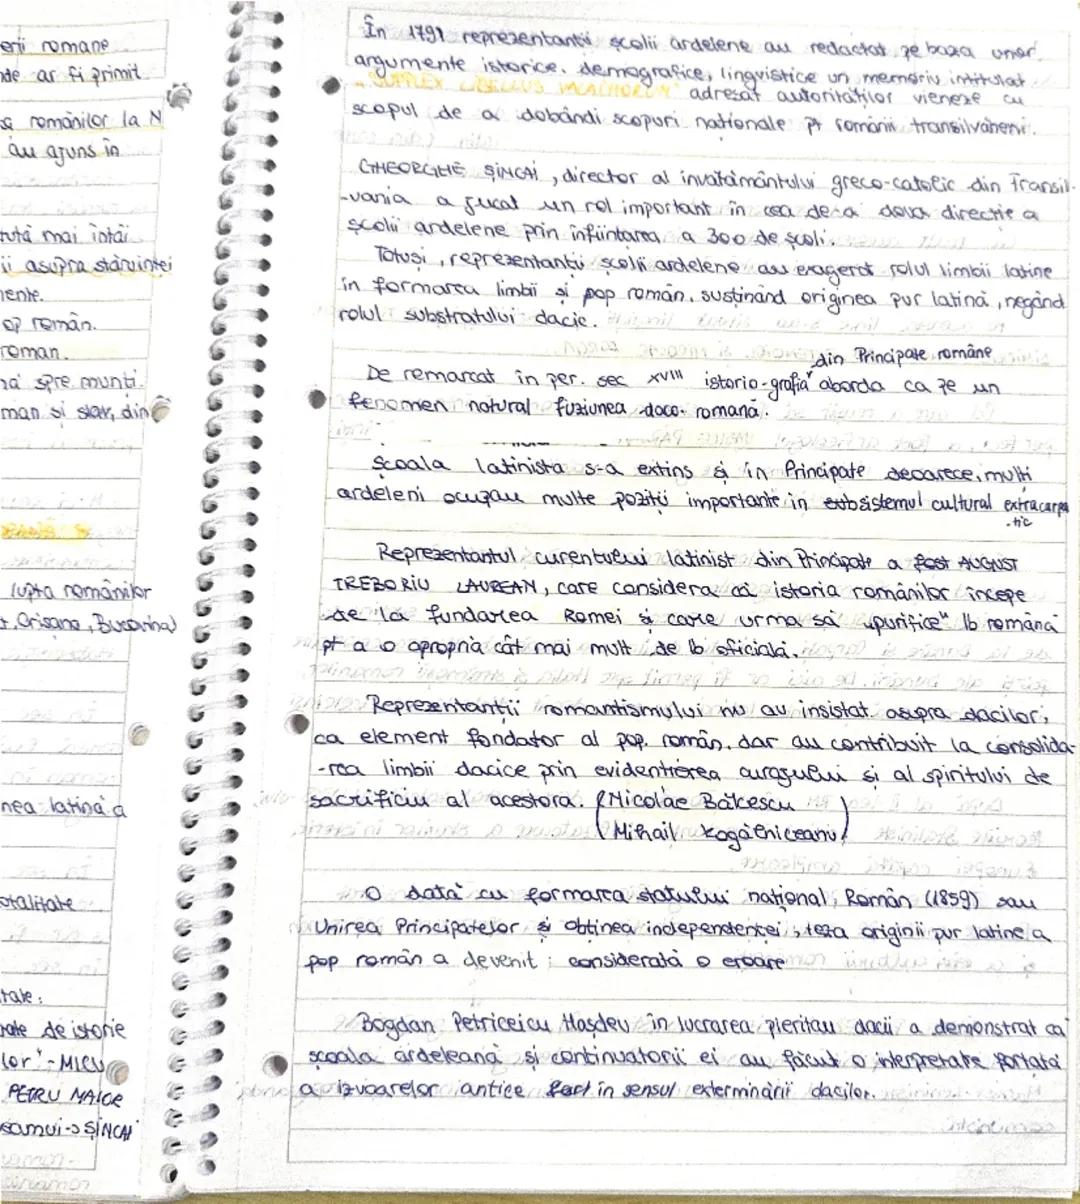 erii romane
de ar fi primit
românilor la N
au ajuns în
tută mai întâi
ii asupra stăruinței
nente.
op român.
roman.
nă spre munți.
man și slav, din
lupta românilor
Crișana, Bucovina)
nea latină a
otalitate
tale:
rate de istorie
lor" - MICU
PETRU MAIOR
samui -> ȘINCAI
În 1791 reprezentanții școlii ardelene au redactat pe baza unor
argumente istorice, demografice, lingvistice un memoriu intitulat
"SUPPLEX LIBELLUS VALACHORUM" adresat autorităților vieneze cu
scopul de a dobândi scopuri naționale pt românii transilvăneni.
GHEORGHE ȘINCAI, director al învatamântului greco-catolic din Transil-
-vania a jucat un rol important în cea de-a doua direcție a
școlii ardelene prin înființarea a 300 de școli.
Totuși, reprezentanții școlii ardelene au exagerat rolul limbii latine
în formarea limbii și pop român, susținând originea pur latină, negând
rolul substratului dacic.
din Principate române
De remarcat în per. sec XVIII istorio-grafia aborda ca pe un
fenomen natural fuziunea daco-romană.
Școala latinista s-a extins și în Principate deoarece, mulți
ardeleni ocupau multe poziții importante în subsistemul cultural extracarpa
-tic
Reprezentantul curentului latinist din Principate a fost AUGUST
TREBORIU LAUREAN, care considera că istoria românilor începe
de la fundarea Romei și care urma să "purifice" lb română
pt a o apropria cât mai mult de lb oficială.
Reprezentanții romantismului nu au insistat asupra dacilor,
ca element fondator al pop. român, dar au contribuit la consolida-
-rea limbii dacice prin evidențierea curajului și al spiritului de
sacrificiu al acestora. (Nicolae Bălcescu
Mihail Kogălniceanu)
O dată cu formarea statului național Român (1859) sau
Unirea Principatelor și obținea independenței, teza originii pur latine a
pop român a devenit considerată o eroare
Bogdan Petriceicu Hașdeu în lucrarea pieritau dacii a demonstrat că
școala ardeleană și continuatorii ei au făcut o interpretare forțată
a izvoarelor antice în sensul exterminării dacilor.